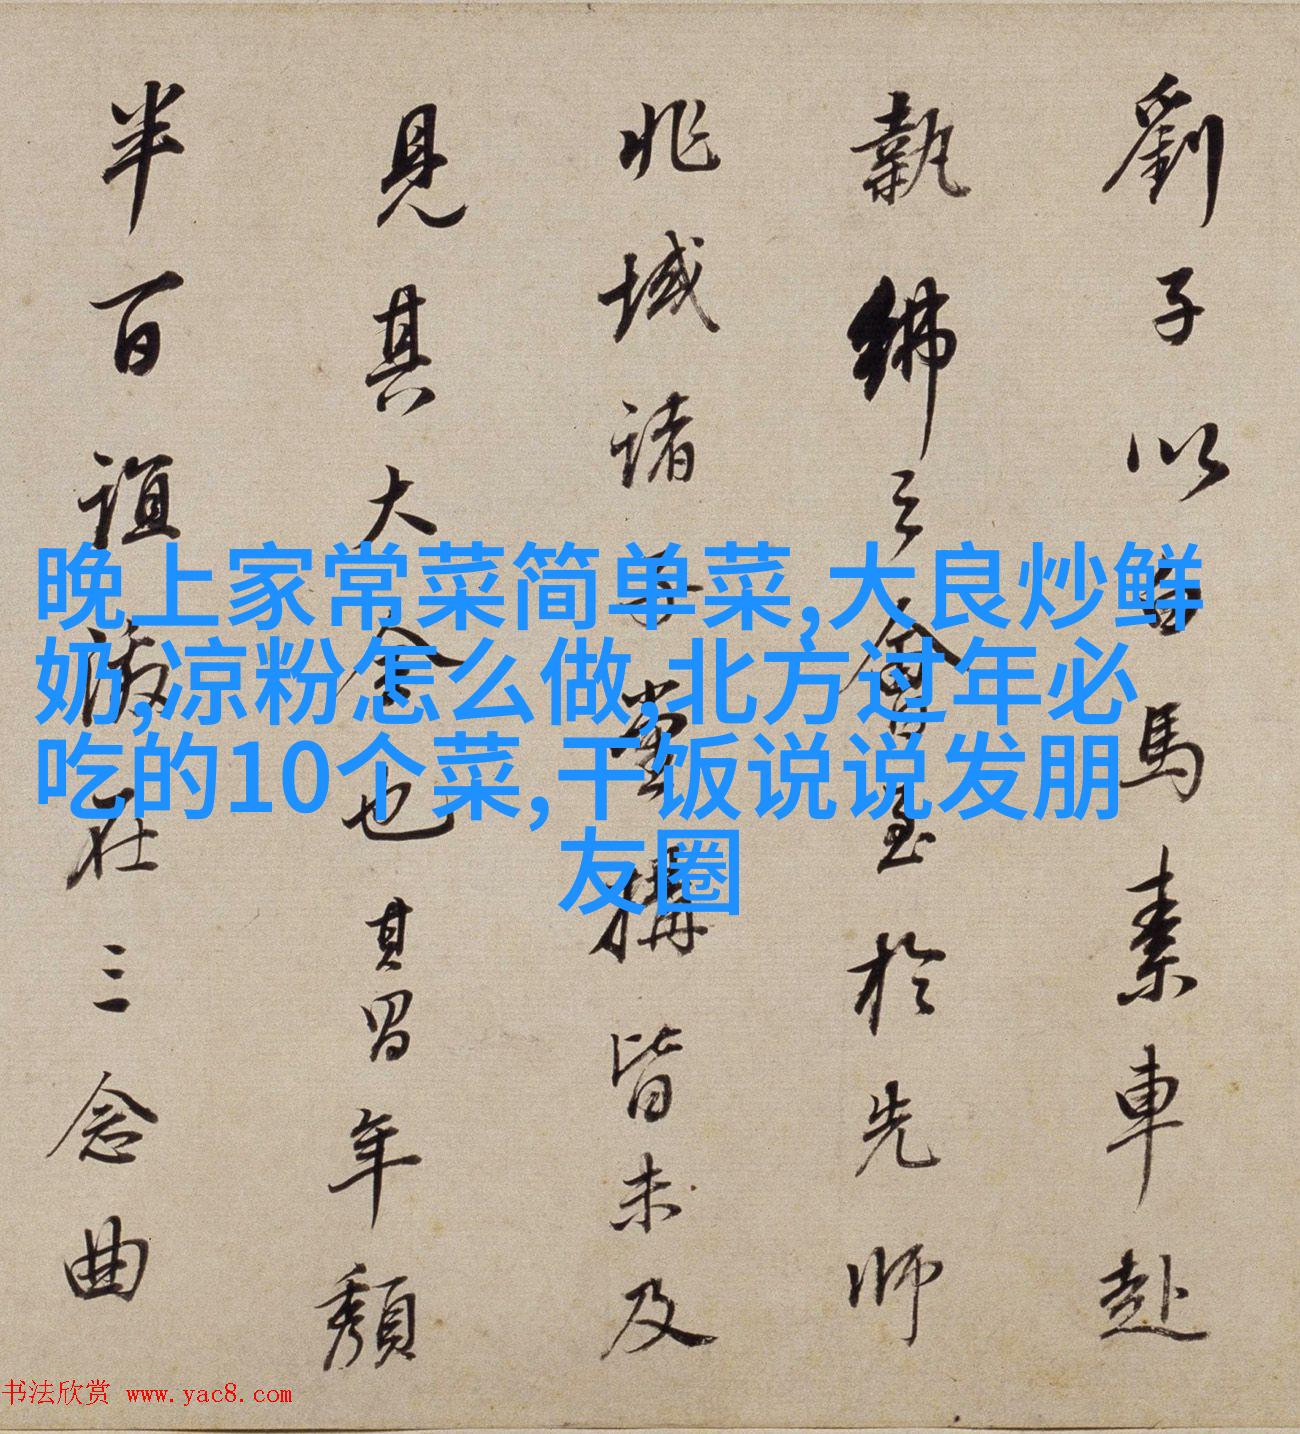 劉子以白馬素車赴
執紼之會至於先師
兆域諸子堂構皆未及
見其大全也其年頹
半百誼在三念曲
晚上家常菜简单菜,大良炒鲜
奶,凉粉怎么做,北方过年必
吃的10个菜,干饭说说发朋
友圈
书法欣赏 www.yac8.com